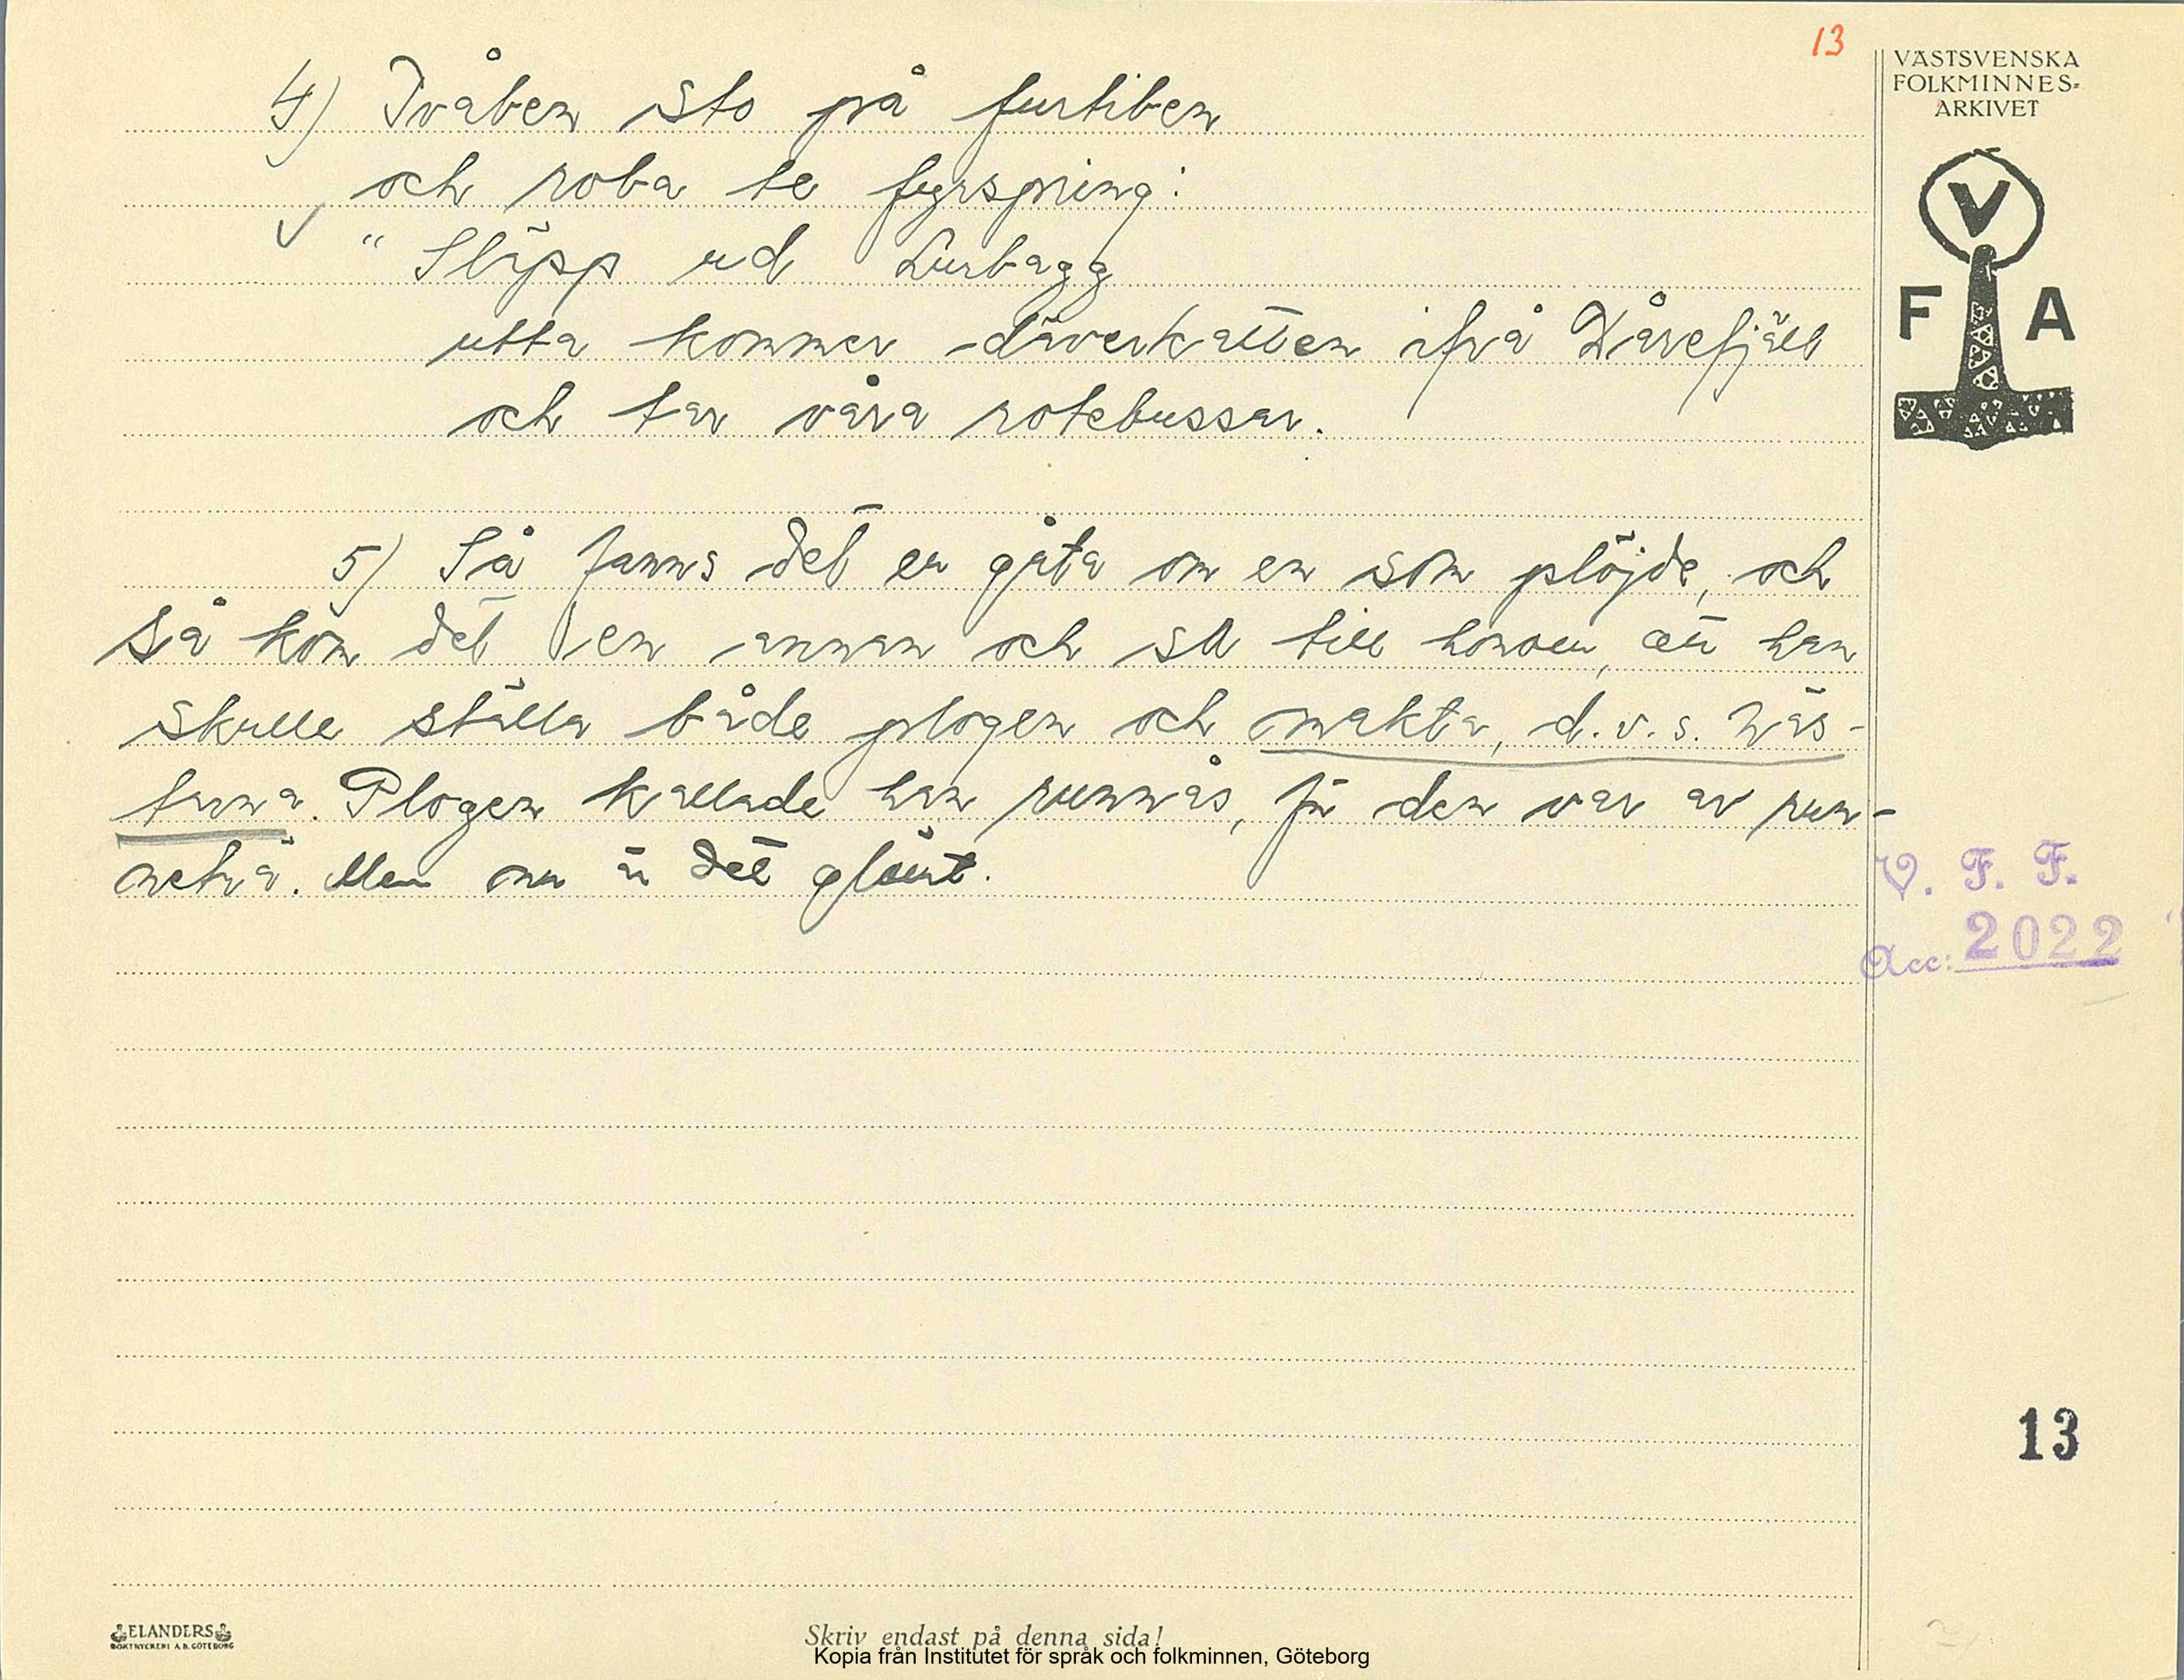 13
VÄSTSVENSKA
FOLKMINNES-
ARKIVET
V
F A
4) Tvåben sto på furtiben
och roba te fyrspring:
"Släpp ud Lurbagg
utta kommer däverkatten ifrå Dårefjäll
och tar våra rotebussar.
5) Så fanns det en gåta om en som plöjde, och
så kom det en annan och sa till honom, att han
skulle ställa både plogen och makta, d.v.s. häs-
tarna. Plogen kallade han runnås, för den var av run-
neträ. Men nu är det glömt.
V. F. F.
Acc: 2022
13
ELANDERS
BOKTRYCKERI A.B. GÖTEBORG
Skriv endast på denna sida!
Kopia från Institutet för språk och folkminnen, Göteborg